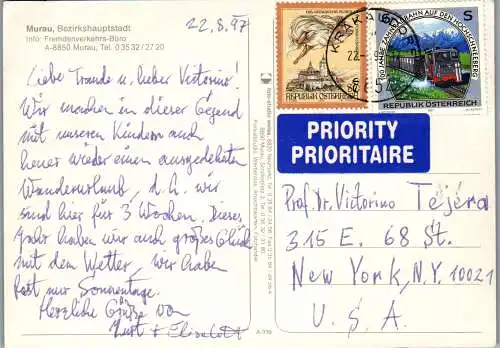 Murau, Bezirkshauptstadt
Info: Fremdenverkehrs-Büro
A-8850 Murau, Tel. 0 35 32 / 27 20
22.8.97
Liebe Traude u. lieber Victorino!
Wir machen in dieser Gegend
mit unseren Kindern auch
heuer wieder einen ausgedehnten
Wanderurlaub, d.h. wir
sind hier für 3 Wochen. Dieses
Jahr haben wir auch großes Glück
mit dem Wetter, wir haben
fast nur Sonnentage.
Herzliche Grüße von
Kurt + Elisabeth
A 319
REPUBLIK ÖSTERREICH
100 JAHRE ZAHNRADBAHN AUF DEN HOCHSCHNEEBERG
6
S
REPUBLIK ÖSTERREICH
PRIORITY
PRIORITAIRE
Prof. Dr. Victorino Tejera
315 E. 68 St.
New York, N.Y. 10021
U. S. A.